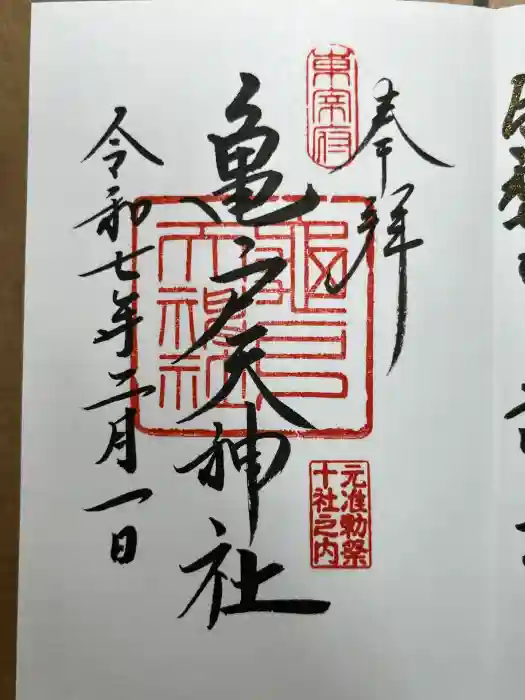 奉拝
東宰府
亀戸天神社
亀戸天神社
元准勅祭
十社之内
令和七年二月一日